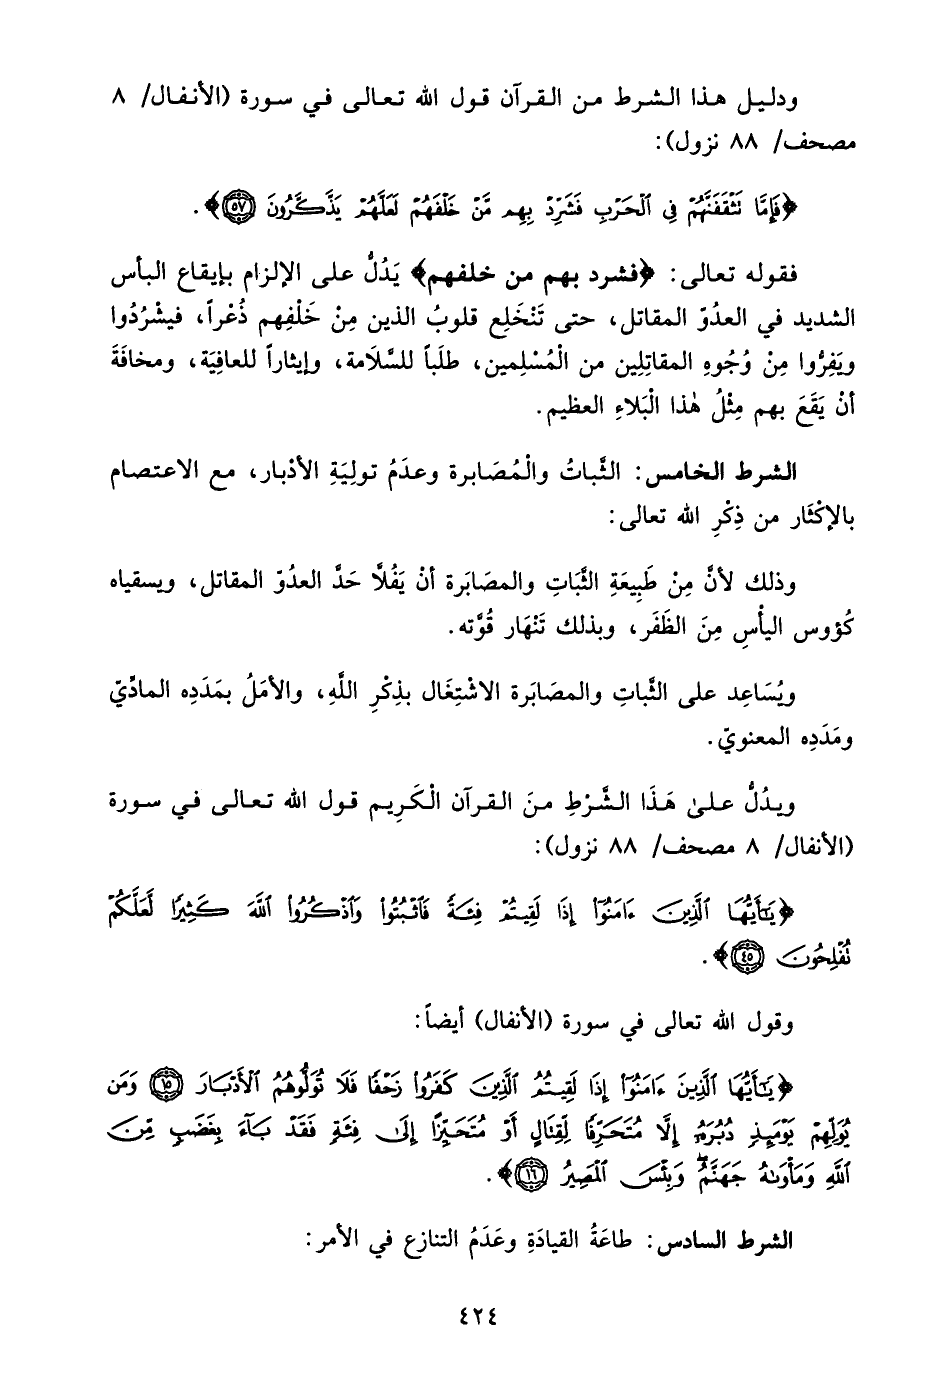 ودليل هذا الشرط من القرآن قول الله تعالى في سورة (الأنفال/ ٨
مصحف/ ٨٨ نزول):
﴿فَإِمَّا تَثْقَفَنَّهُمْ فِي ٱلْحَرْبِ فَشَرِّدْ بِهِم مَّنْ خَلْفَهُمْ لَعَلَّهُمْ يَذَّكَّرُونَ ٥٧﴾.
فقوله تعالى: ﴿فشرد بهم من خلفهم﴾ يَدُلُّ على الإلزام بإيقاع البأس
الشديد في العدُوّ المقاتل، حتى تَنْخَلِع قلوبُ الذين مِنْ خَلْفِهم ذُعْراً، فيشْرُدُوا
ويَفِرُّوا مِنْ وُجُوهِ المقاتِلِين من الْمُسْلِمين، طلَباً للسَّلَامة، وإيثاراً للعافِيَة، ومخافَةَ
أنْ يَقَعَ بهم مِثْلُ هٰذا الْبَلاءِ العظيم.
الشرط الخامس: الثَّباتُ والْمُصَابرة وعدَمُ تولِيَةِ الأدْبار، مع الاعتصام
بالإكْثَار من ذِكْرِ الله تعالى:
وذلك لأنَّ مِنْ طَبِيعَةِ الثَّبَاتِ والمصَابَرة أنْ يَفُلَّا حَدَّ العدُوّ المقاتل، ويسقياه
كُؤوس اليأْسِ مِنَ الظَفَر، وبذلك تَنْهَار قُوَّته.
ويُسَاعِد على الثَّباتِ والمصَابَرة الاشْتِغَال بذِكْرِ اللَّهِ، والأمَلُ بمَدَدِه المادِّيّ
ومَدَدِه المعنويّ.
ويدُلُّ علىٰ هَذَا الشَّرْطِ منَ القرآن الْكَرِيم قول الله تعالى في سورة
(الأنفال/ ٨ مصحف/ ٨٨ نزول):
﴿يَٰٓأَيُّهَا ٱلَّذِينَ ءَامَنُوٓا۟ إِذَا لَقِيتُمْ فِئَةً فَٱثْبُتُوا۟ وَٱذْكُرُوا۟ ٱللَّهَ كَثِيرًا لَّعَلَّكُمْ
تُفْلِحُونَ ٤٥﴾.
وقول الله تعالى في سورة (الأنفال) أيضاً:
﴿يَٰٓأَيُّهَا ٱلَّذِينَ ءَامَنُوٓا۟ إِذَا لَقِيتُمُ ٱلَّذِينَ كَفَرُوا۟ زَحْفًا فَلَا تُوَلُّوهُمُ ٱلْأَدْبَارَ ١٥ وَمَن
يُوَلِّهِمْ يَوْمَئِذٍ دُبُرَهُۥٓ إِلَّا مُتَحَرِّفًا لِّقِتَالٍ أَوْ مُتَحَيِّزًا إِلَىٰ فِئَةٍ فَقَدْ بَآءَ بِغَضَبٍ مِّنَ
ٱللَّهِ وَمَأْوَىٰهُ جَهَنَّمُ ۖ وَبِئْسَ ٱلْمَصِيرُ ١٦﴾.
الشرط السادس: طاعَةُ القيادَةِ وعَدَمُ التنازع في الأمر:
٤٢٤